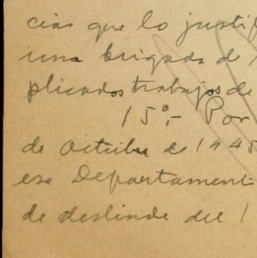 cias que lo justif
una brigada d
plicados trabajos de
15º.- Por
de Octubre de 1945
ese Departament
de deslinde del 1